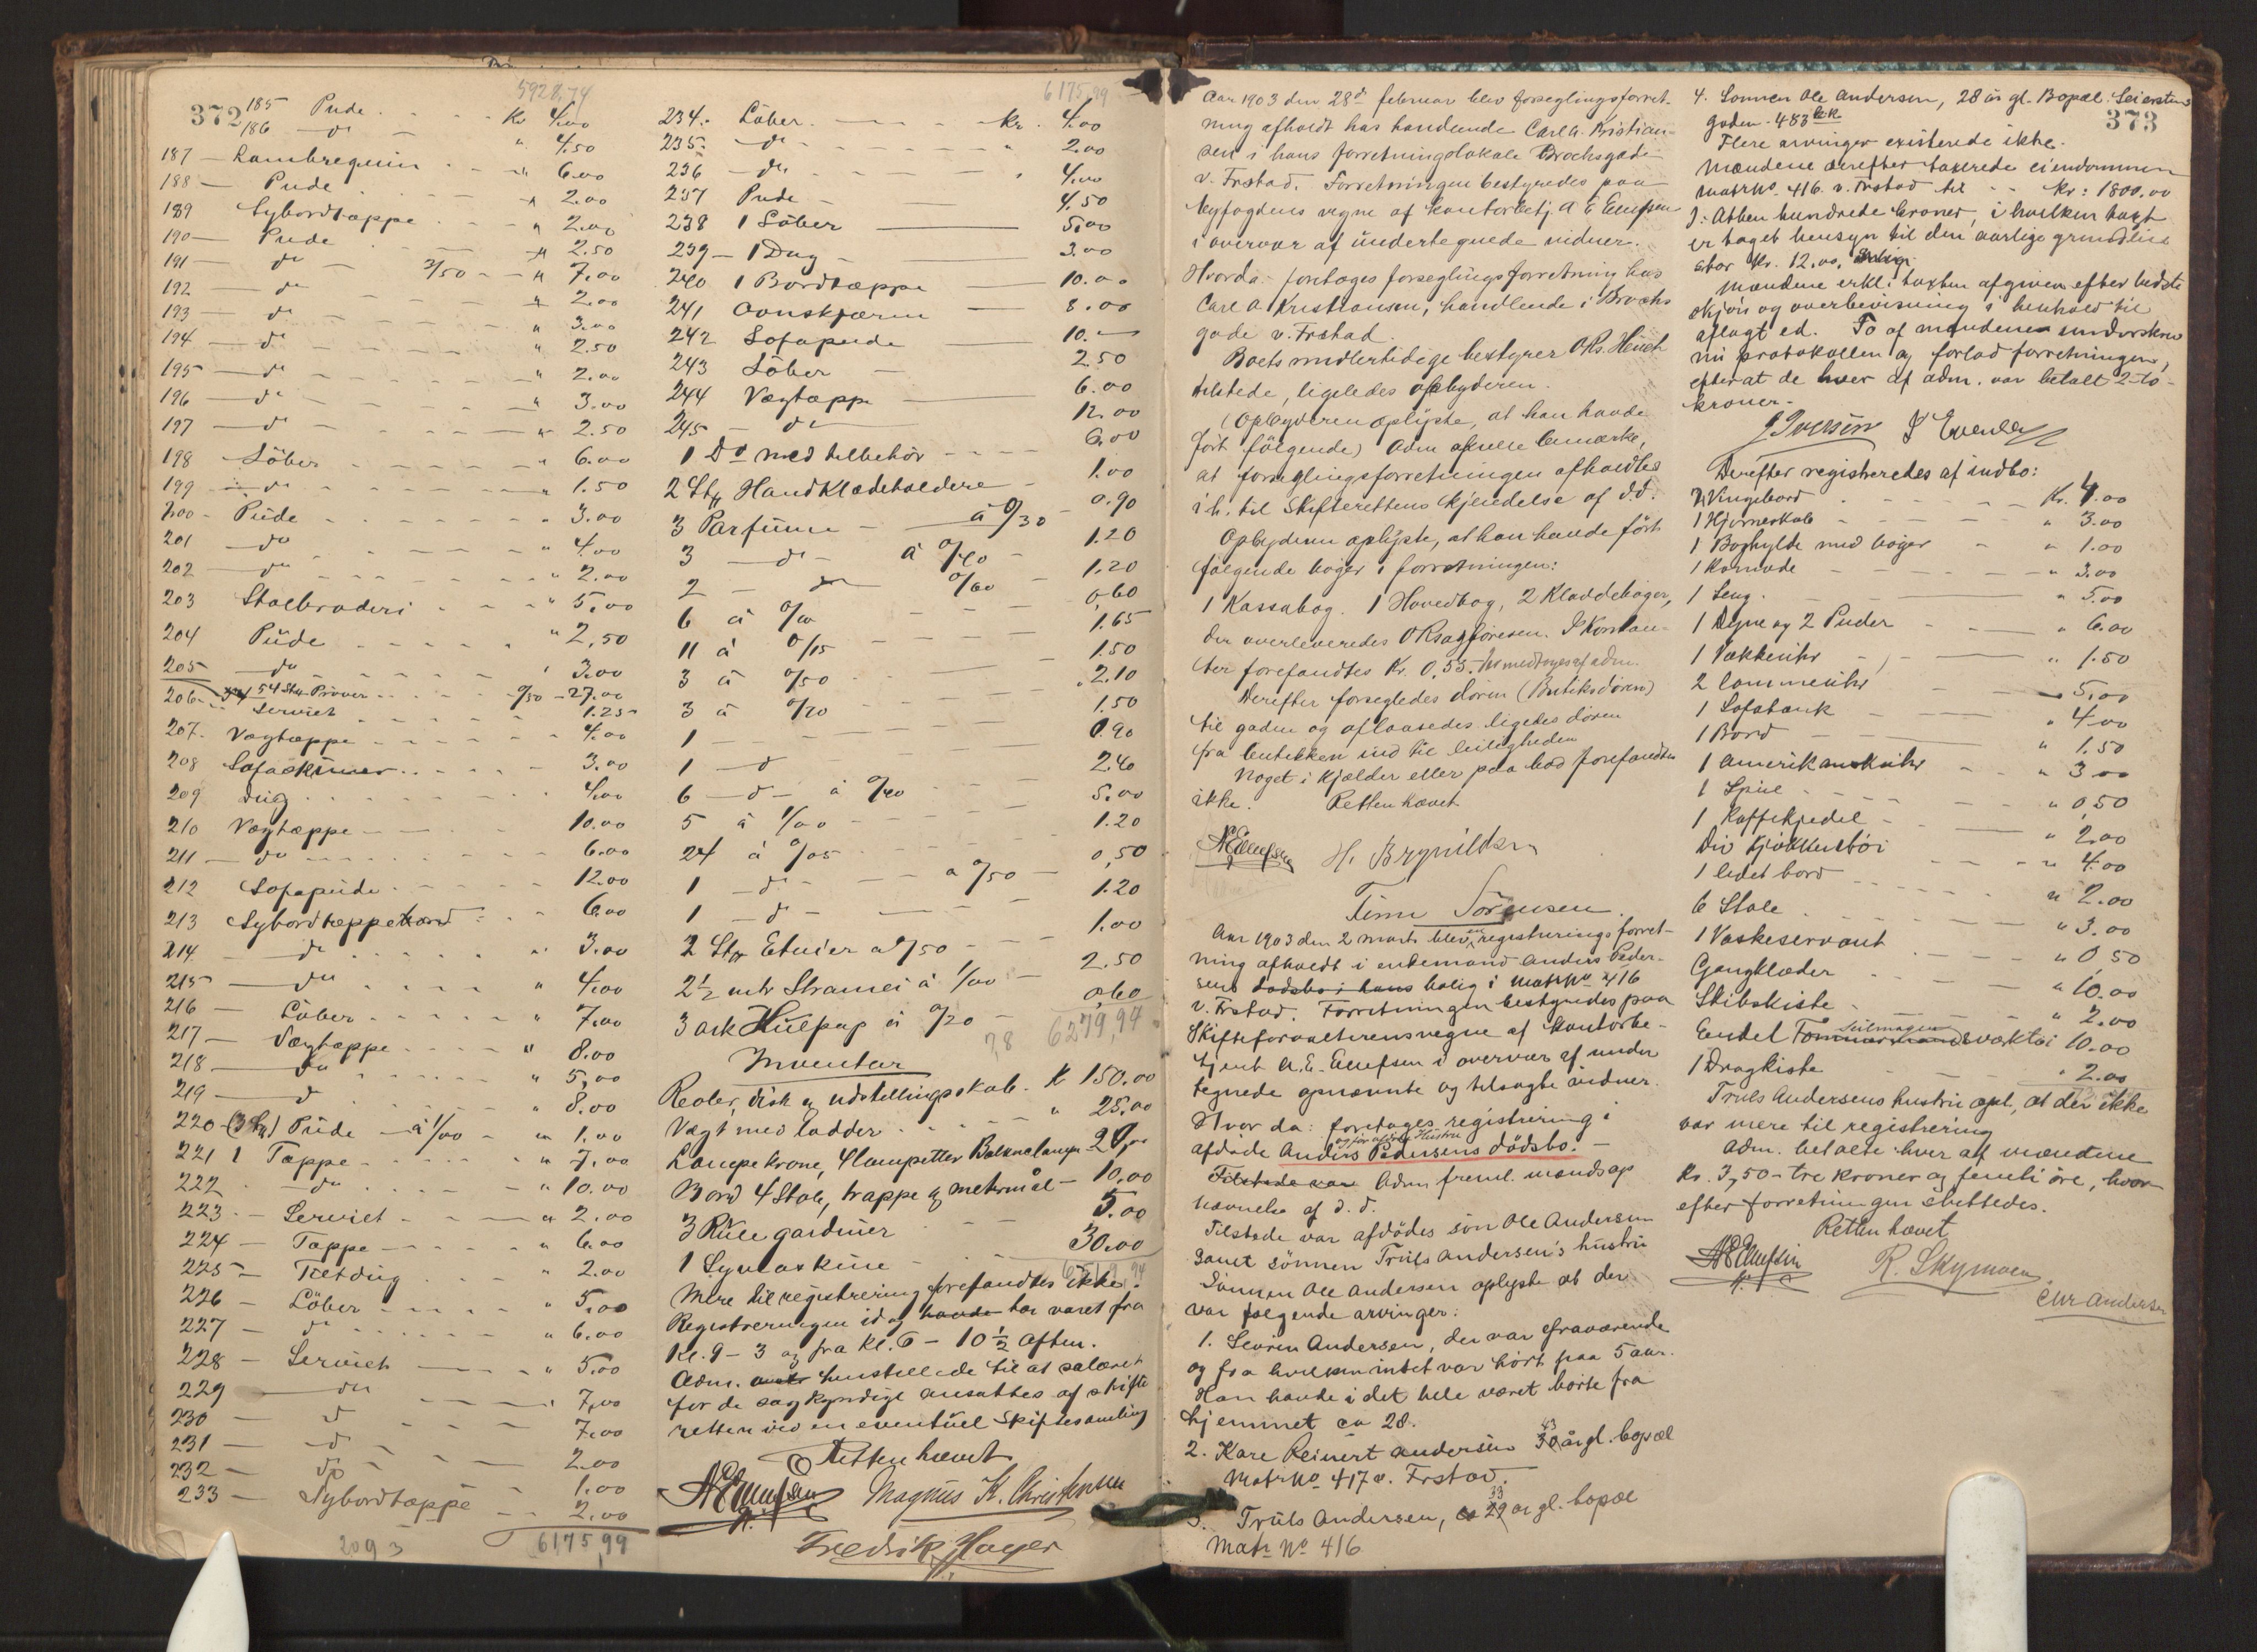 372
5928,74
185 Pude Kr 4.00
186 - do - " 4.50
187 - Lambrequin " 6.00
188 - Pude " 2.00
189 Sybordtæppe " 2.00
190 - Pude " 2.50
191 - do - 3/50 - " 7.00
192 - do " 2.00
193 - do " 3.00
194 - do " 2.50
195 - do " 2.00
196 - do " 3.00
197 - do " 2.50
198 - Löber " 6.00
199 - do " 1.50
200 - Pude " 3.00
201 - do " 4.00
202 - do " 2.00
203 Stolbroderi " 5.00
204 Pude " 2,50
205 - do " 3.00
206 - 54 Stk Prøver 0/50 - 27.00
Serviet 1.25
207. Vægtæppe 4.00
208 Sofaskiner 3.00
209 Dug 4.00
210 Vægtæppe 10.00
211 - do 6.00
212 Sofapude 12.00
213 Sybordtæppe 6.00
214 - do 3.00
215 - do " 4.00
216 - Löber " 7.00
217 - Vægtæppe " 8.00
218 - do " 5,00
219 - d " 8.00
220 - (3 Stk) Pude - à 1/00 - " 1.00
221 1 Tæppe " 7.00
222 - do " 10.00
223 - Serviet " 2.00
224 - Tæppe " 6.00
225 - Tletdug " 2.00
226 - Löber " 5.00
227 - d " 6.00
228 - Serviet " 5.00
229 - do " 7,00
230 - d 7.00
231 - d 2.00
232 - do 1.00
233 - Sybordtæppe 2.00
2093 6175,99
6175,99
234. Löber Kr. 4.00
235. do " 2.00
236 - do " 4.00
237 Pude 4.50
238 1 Löber 5.00
239 - 1 Dug 3.00
240 1 Bordtæppe 10.00
241 Ovnskjærm 8.00
242 Sofapude 10.-
243 Löber 2.50
244 Vægtæppe 6.00
245 - do 12.00
1 Do med tilbehör 6.00
2 Stk Handklædeholdere 1.00
3 Parfume à 0/30 - 0.90
3 - do - à 0/40 - 1.20
2 - do 0/60 - 1.20
6 à 0/10 0,60
11 à 0/15 1.65
3 à 0/50 1.50
3 à 0/70 2.10
1 1.50
1 - d 0.90
6 - d - à 0/40 2.40
5 à 1/00 5.00
24 à 0/05 1.20
1 - do - a 0/50 0,50
1 - d - 1.20
2 Stk Etuier a 0/50 1.00
2½ mtr Stramei à 1/00 2.50
3 ark Hulpap à 0/20 0,60
6279,94
Inventar
Reoler, disk og udstillingsskab. K 150.00
Vægt med lodder " 25.00
Lampekrone, 4 lampetter Balkonlampe 20,00
Bord 4 Stole, trappe og metermål - 10.00
3 Rullegardiner 5.00
1 Symaskine 30.00
Mere til registrering forefandtes ikke.
Registreringen idag havde har varet fra
Kl. 9 - 3 og fra Kl. 6 - 10½ aften.
Adm. henstillede til at salæret
for de sagkyndige ansattes af skifte
retten ved en eventuel Skiftesamling
Retten hævet
AEEllefsen Magnus K. Christensen
Fredrik Hayer
Aar 1903 den 28de februar blev forseglingsforret-
ning afholdt hos handlende Carl A. Kristian-
sen i hans forretningslokale Brochsgade
v. Frstad. Forretningen bestyredes paa
Byfogdens vegne af Kontorbetj. A E Ellefsen
i overvær af undertegnede vidner.
Hvorda - foretages forseglingsforretning hos
Carl A Kristiansen, handlende i Brochs
gade v. Frstad.
Boets midlertidige bestyrer ORs. Heuch
tilstede, ligeledes opbyderen.
(Opbyderen oplyste, at han havde
fört fölgende) Adm. bemærke,
at forseglingsforretningen afholdtes
i h. til Skifterettens kjendelse af d.d.
Opbyderen oplyste, at han havde fört
følgende bøger i forretningen:
1 Kassabog. 1 Hovedbog, 2 Kladdebøger,
der overleveredes ORsagføreren. I Kontan-
ter forefandtes Kr. 0,55. medtoges af adm.
Derefter forsegledes døren (Butiksdören)
til gaden og aflaasedes ligedes dören
fra butikken ind til leiligheden
Noget i kjælder eller paa lod forefandtes
ikke. Retten hævet
AEEllefsen H. Brynildsen
Timm Sørensen.
Aar 1903 den 2 marts blev en registreringsforret-
ning afholdt i enkemand Anders Peder-
sens dødsbo i hans bolig i Matr No 416
v. Frstad. Forretningen bestyredes paa
Skifteforvalterens vegne af Kontorbe-
tjent A.E. Ellefsen i overvær af under
tegnede opnævnte og tilsagte vidner.
Hvor da: foretages registrering i
og før afdøde Hustru
afdøde Anders Pedersens dödsbo.
Tilstede var Adm freml. mandsop
nævnelse af d.d.
Tilstede var afdödes sön Ole Andersen
samt sönnen Truls Andersen's hustru
Sönnen Ole Andersen oplyste at der
var følgende arvinger:
1. Severin Andersen, der var fraværende
og fra hvem intet var hørt paa 5 aar.
Han havde i det hele været borte fra
hjemmet ca 28.
2. Kare Reinert Andersen 43 30 år gl. bopæl
Matr No 417 v. Frstad.
3. Truls Andersen, ca 33 29 år gl. bopæl
Matr No 416
373
4. Sønnen Ole Andersen, 28 år gl. Bopæl: Seierstens
gaden. 483
Flere arvinger existerede ikke.
Mændene derefter taxerede eiendommen
matr No. 416. v. Frstad til Kr: 1800.00
ɔ: Atten hundrede kroner, i hvilken taxt
er taget hensyn til den aarlige grundleie
stor Kr. 12,00.
Mændene erkl. taxten afgiven efter bedste
skjøn og overbevisning i henhold til
aflagt ed. To af mændene underskrev
nu protokollen og forlod forretningen,
efterat de hver af adm. var betalt 2 - to -
kroner.
J. Iversen
Derefter registreredes af indbo:
2 Vingebord Kr. 4.00
1 Hjørneskab " 3.00
1 Boghylde med bøger " 1.00
1 Komode " 3.00
1 Seng " 5.00
1 Dyne og 2 Puder " 6.00
1 Vækkeuhr " 1.50
2 lommeuhr 5,00
1 Sofabænk " 4.00
1 Bord " 1.50
1 Amerikanskuhr " 3.00
1 Speil " 0,50
1 Kaffekjedel " 2.00
Div Kjøkkentöi " 4.00
1 ledet bord " 2.00
6 Stole " 3.00
1 Vaskeservant " 0,50
Gangklæder " 10.00
Skibskiste " 2.00
Seilmager
Endel Tømmermandsværktøi 10.00
1 Dragkiste " 2.00
Truls Andersens hustru opl., at der ikke
var mere til registrering
Adm. betalte hver af mændene
Kr. 3,50 - tre kroner og femti öre, hvor
efter forretningen sluttedes.
Retten hævet
AEEllefsen R. Skymoen
Chr Andersen